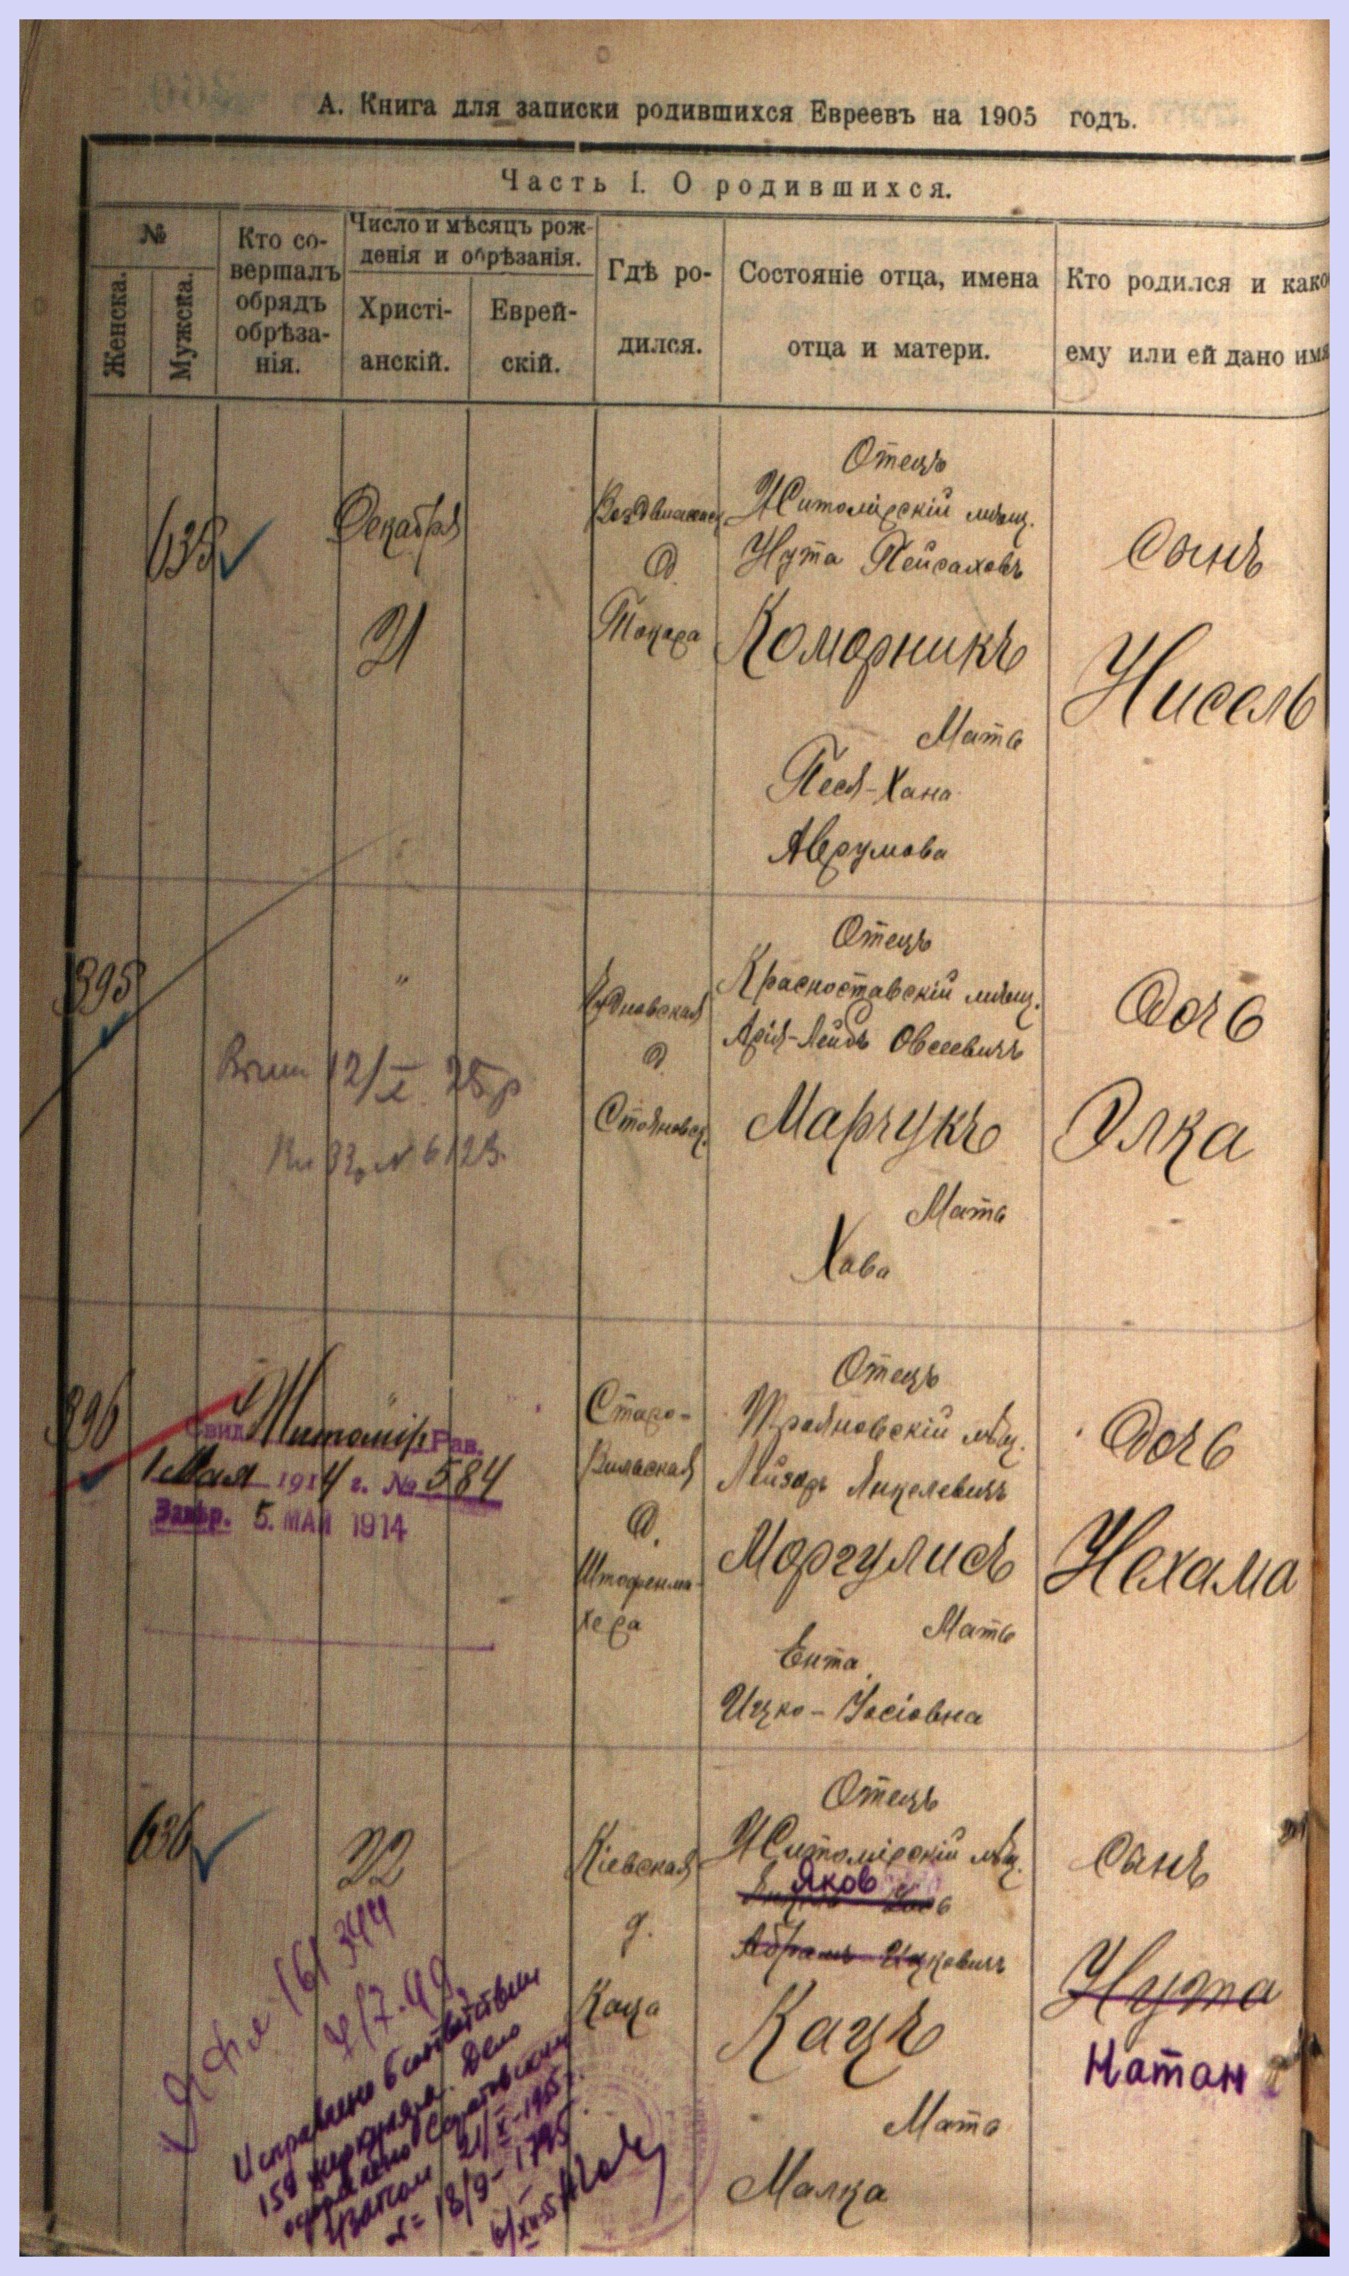 А. Книга для записки родившихся Евреевъ на 1905 годъ.
Часть I. О родившихся.
№
Женска.
Мужска.
Кто со-
вершалъ
обрядъ
обрѣза-
нія.
Число и мѣсяцъ рож-
денія и обрѣзанія.
Христі-
анскій.
Еврей-
скій.
Гдѣ ро-
дился.
Состояніе отца, имена
отца и матери.
Кто родился и како
ему или ей дано имя
635
Декабря
21
д.
Токаря
Отецъ
Житомірскій мѣщ.
Нута Пейсаховъ
Коморникъ
Мать
Песя-Хана
Аврумова
сынъ
Нисель
395
"
12/X 25 р
6123
Чудновская
д.
Стояновск.
Отецъ
Красноставскій мѣщ.
Арія-Лейбъ Овсеевичъ
Марчукъ
Мать
Хава
Дочь
Элка
396
"
Свид. Житомір. Рав.
1 Мая 1914 г. № 584
Завѣр. 5. МАЙ 1914
Старо-
Вильская
д.
Штофенма-
хера
Отецъ
Трояновскій мѣщ.
Лейзаръ Янкелевичъ
Моргулисъ
Мать
Ента
Ицко-Іосіовна
Дочь
Нехама
636
22
161344
4/7-49
Исправлено в соответствии
159 циркуляра. Дело
Саратовским
21/X-1955 г.
18/9-1795
6/XII-55
Кіевская
д.
Каца
Отецъ
Житомірскій мѣщ.
Яков
Абрамъ Ицковичъ
Кацъ
Мать
Малка
сынъ
Нута
Натан